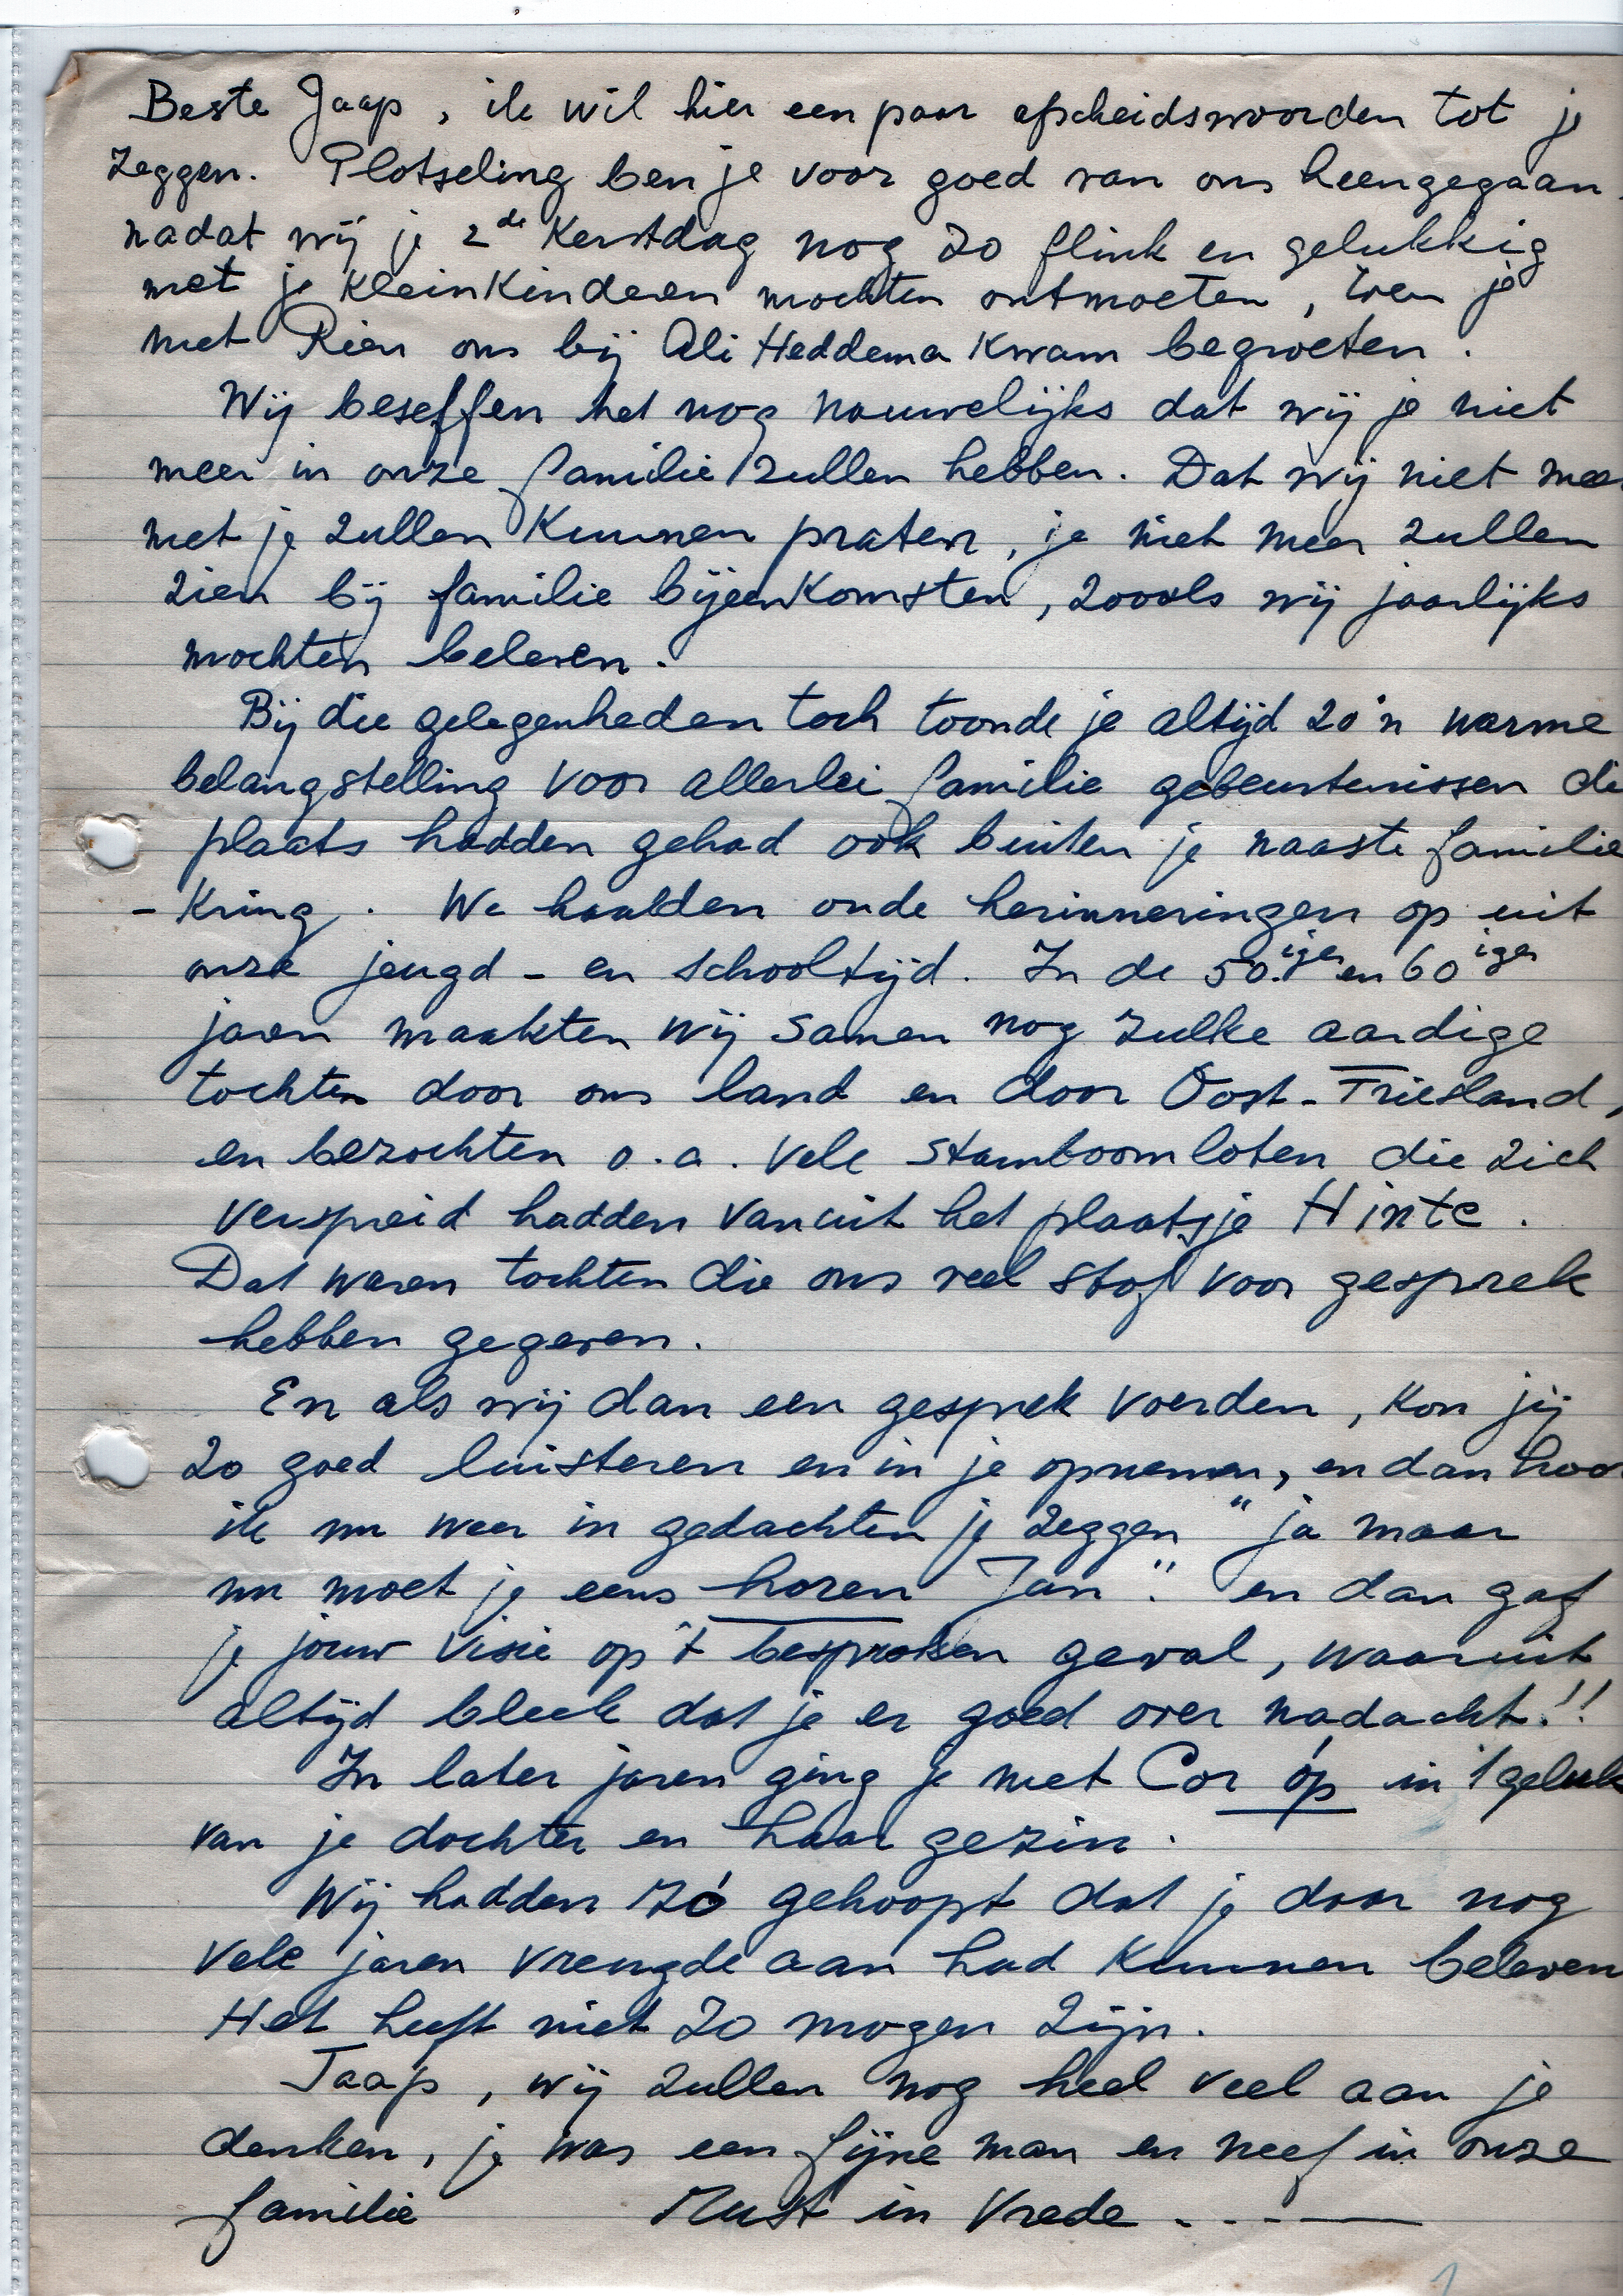 Beste Jaap, ik wil hier een paar afscheidswoorden tot je
zeggen. Plotseling ben je voor goed van ons heengegaan
nadat wij je 2de Kerstdag nog zo flink en gelukkig
met je kleinkinderen mochten ontmoeten, toen je
met Rien ons bij Ali Heddema kwam begroeten.
Wij beseffen het nog nauwelijks dat wij je niet
meer in onze familie zullen hebben. Dat wij niet meer
met je zullen kunnen praten, je niet meer zullen
zien bij familie bijeenkomsten, zooals wij jaarlijks
mochten beleven.
Bij die gelegenheden toch toonde je altijd zo'n warme
belangstelling voor allerlei familie gebeurtenissen die
plaats hadden gehad ook buiten je naaste familie
- kring. We haalden oude herinneringen op uit
onze jeugd - en schooltijd. In de 50.iger en 60iger
jaren maakten wij samen nog zulke aardige
tochten door ons land en door Oost-Friesland,
en bezochten o.a. vele stamboomloten die zich
verspreid hadden vanuit het plaatsje Hinte.
Dat waren tochten die ons veel stof voor gesprek
hebben gegeven.
En als wij dan een gesprek voerden, kon jij
zo goed luisteren en in je opnemen, en dan hoor
ik nu weer in gedachten je zeggen "ja maar
nu moet je eens horen Jan". en dan gaf
je jouw visie op 't besproken geval, waaruit
altijd bleek dat je er goed over nadacht!!
In later jaren ging je met Cor óp in 't geluk
van je dochter en haar gezin.
Wij hadden zó gehoopt dat je daar nog
vele jaren vreugde aan had kunnen beleven
Het heeft niet zo mogen zijn.
Jaap, wij zullen nog heel veel aan je
denken, je was een fijne man en neef in onze
familie Rust in Vrede ....—